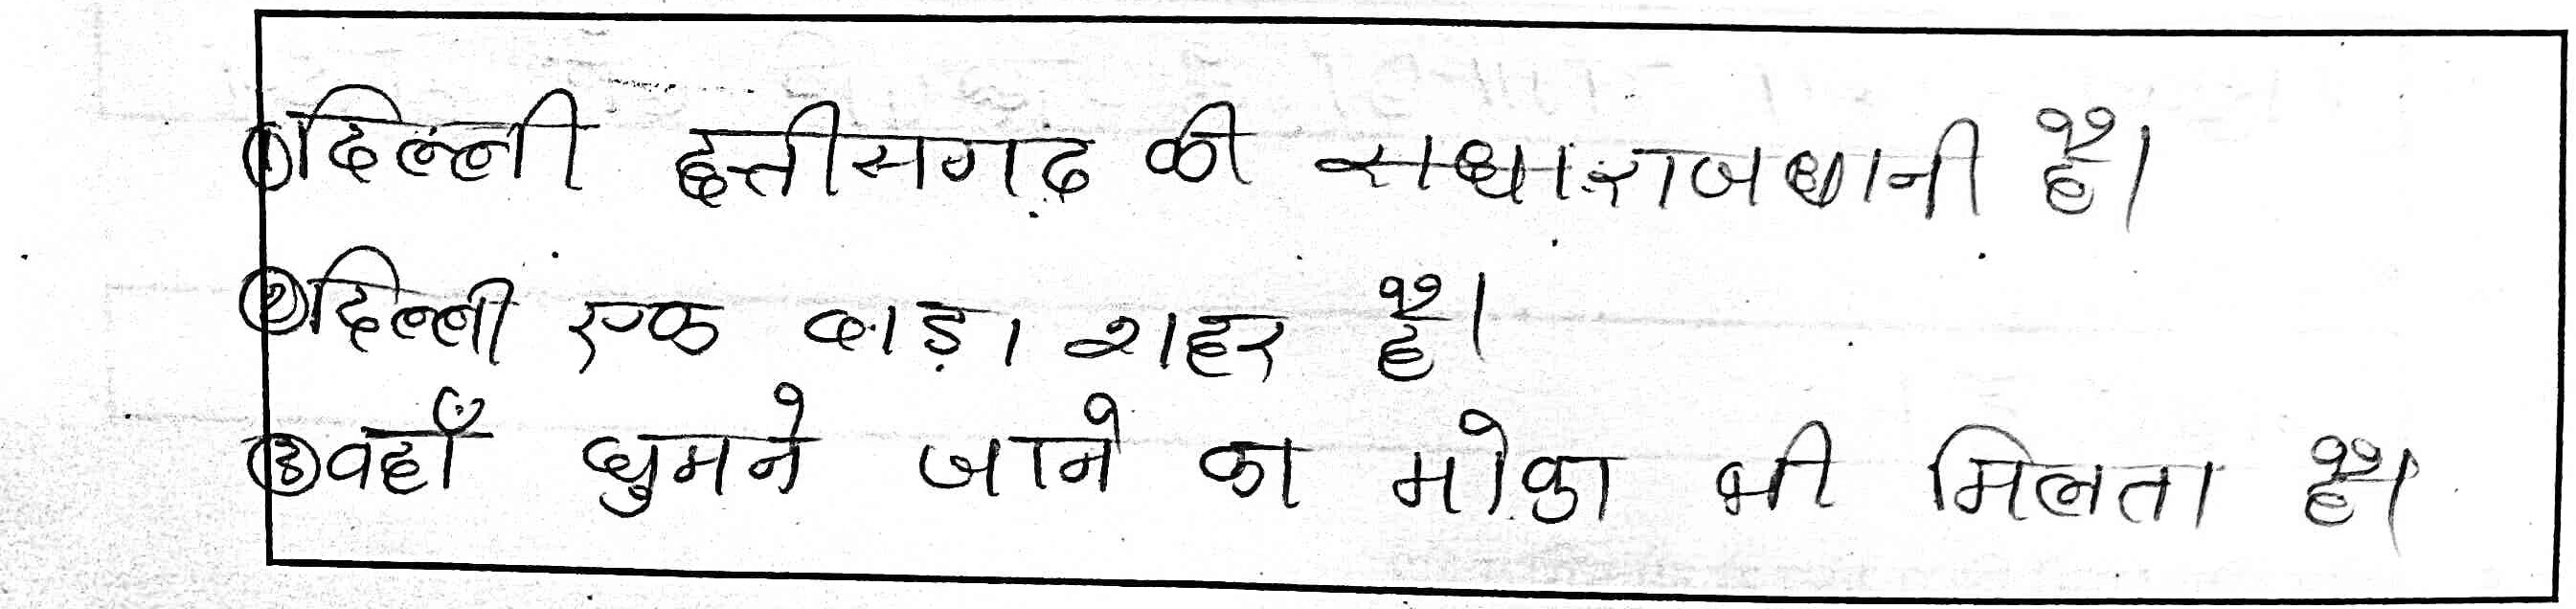 ①दिल्ली छत्तीसगढ़ की राजधानी है।
②दिल्ली एक बाड़ा शहर है।
③वहाँ घुमने जाने का मोका भी मिलता है।